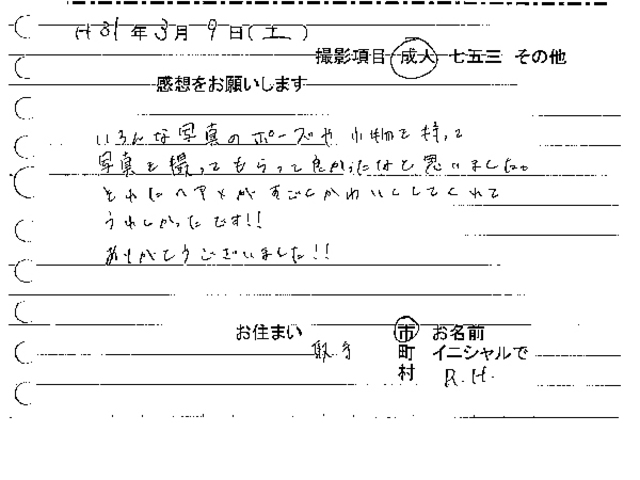 H31年3月9日(土)
撮影項目 成人 七五三 その他
感想をお願いします
いろんな写真のポーズや小物を持って
写真を撮ってもらって良かったなと思いました。
それにヘアメがすごくかわいくしてくれて
うれしかったです!!
ありがとうございました!!
お住まい 取手 市 お名前
町 イニシャルで
村 R.H.